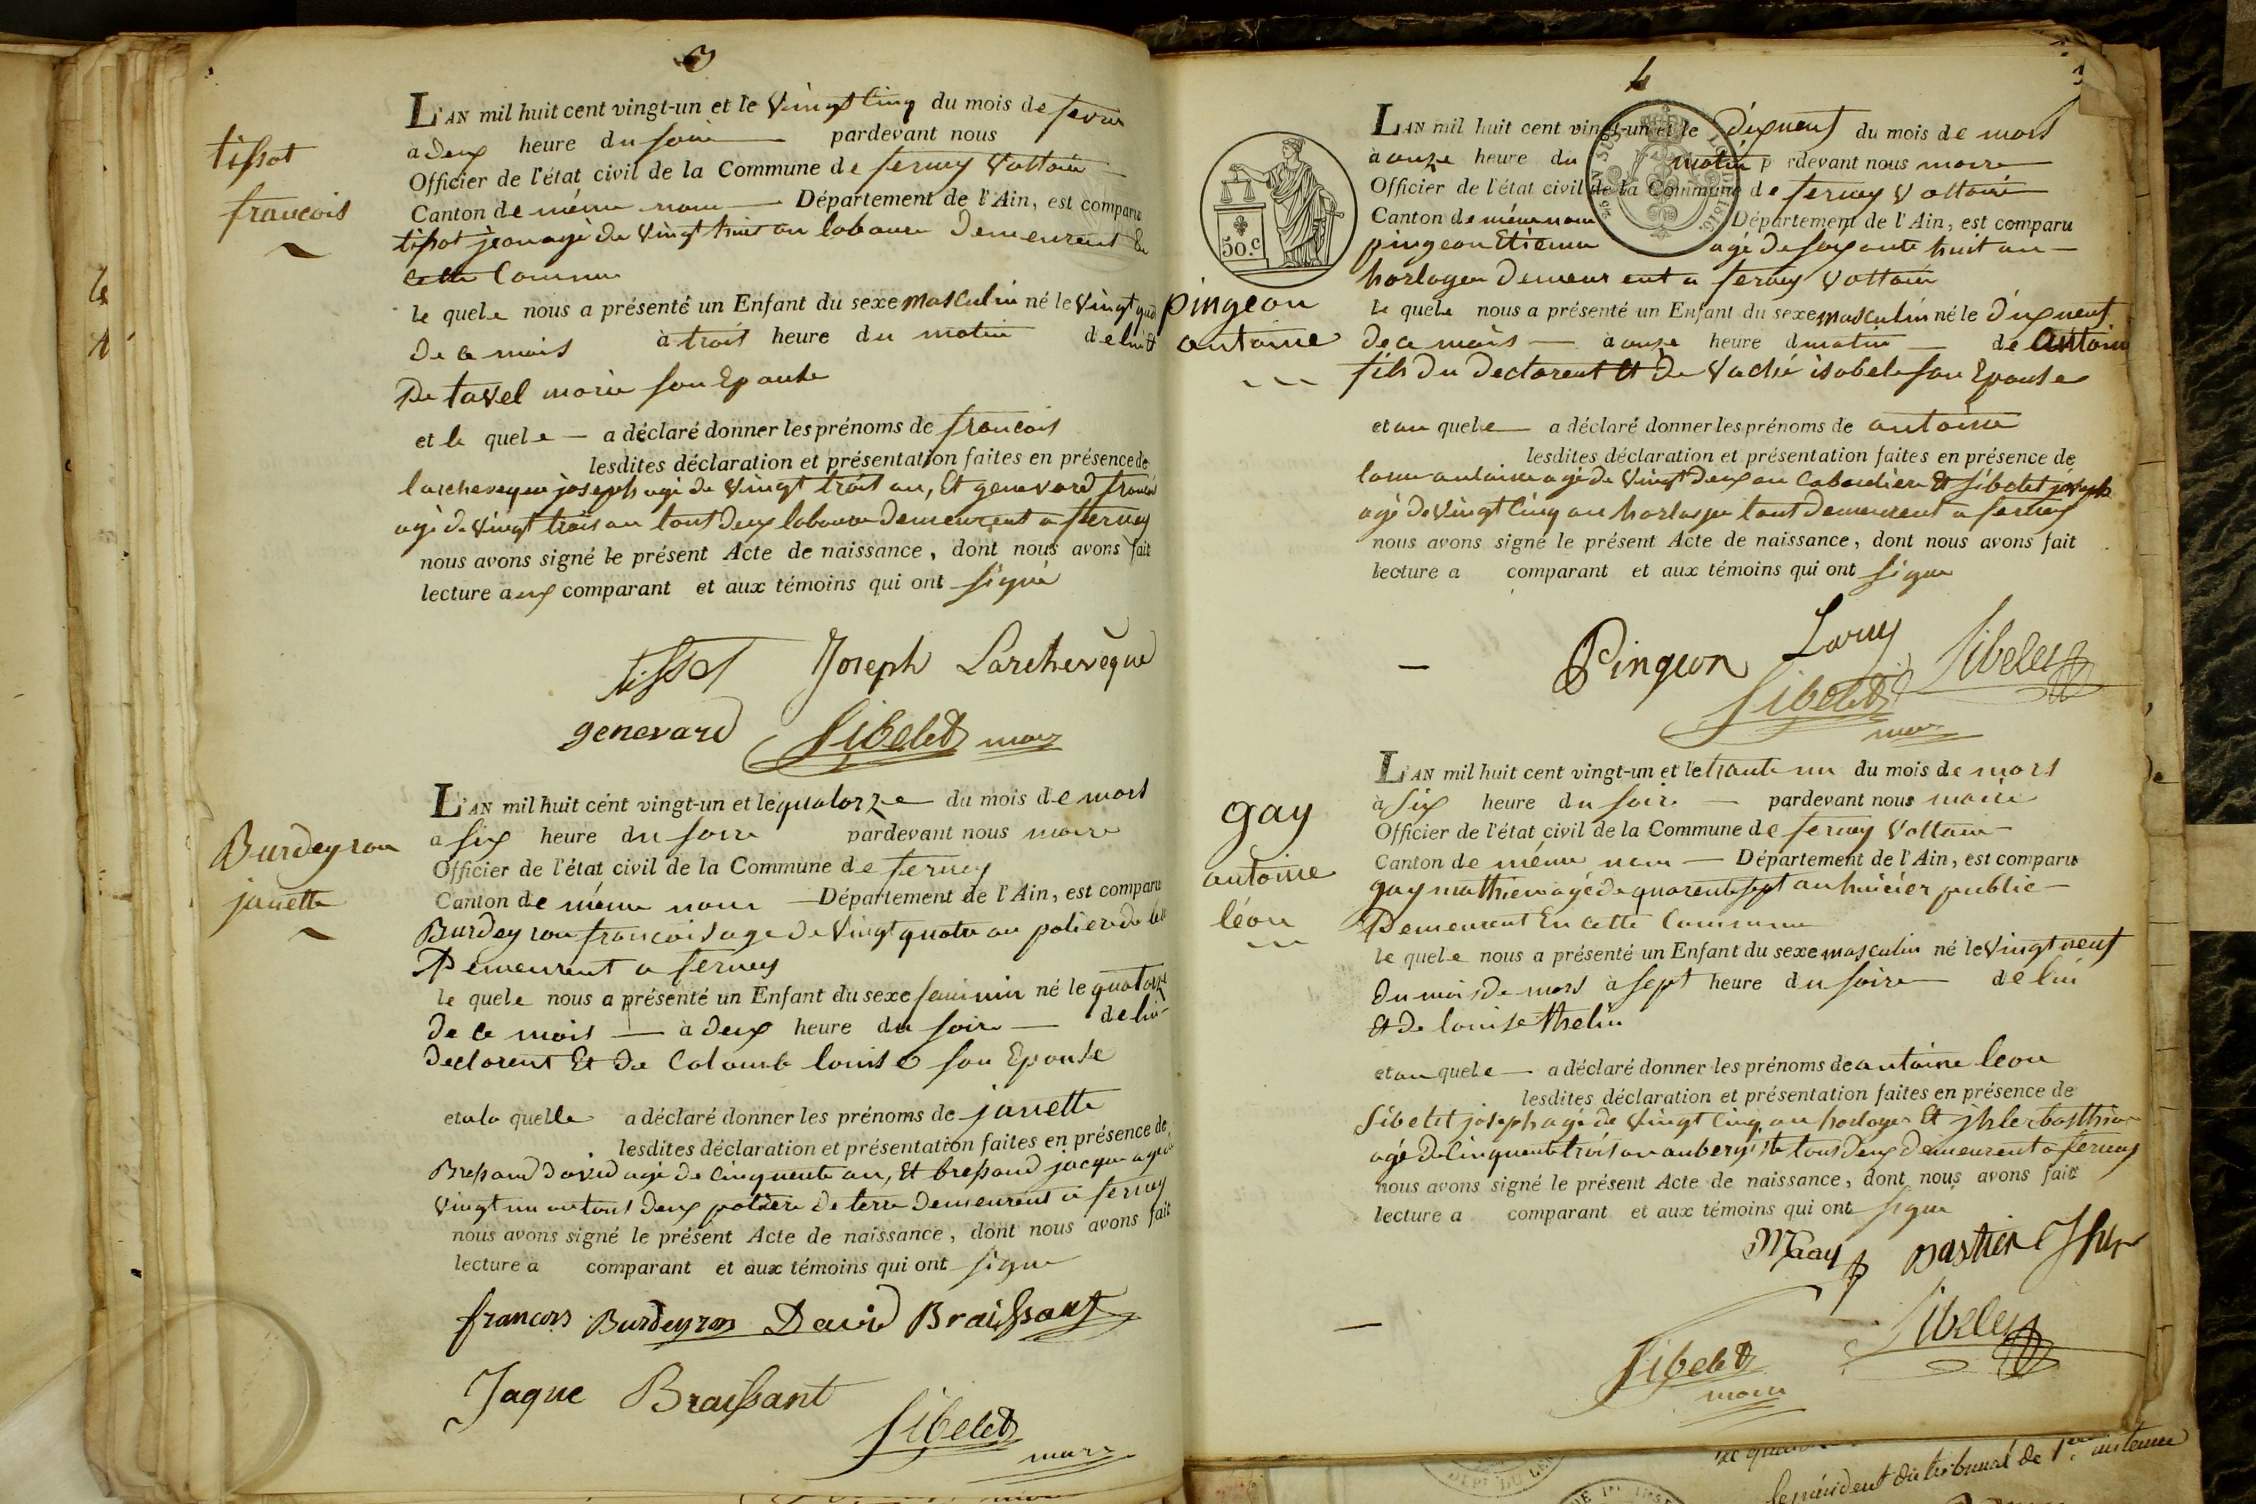 3
tissot
francois
L'AN mil huit cent vingt-un et le vingt cinq du mois de fevrie
a deux heure du soire pardevant nous
Officier de l'état civil de la Commune de ferney Voltaire
Canton de même nom Département de l'Ain, est comparu
tissot jean agé de vingt huit an laboure Demeurent En
cette Commune
le quele nous a présenté un Enfant du sexe masculin né le vingt
de ce mois à trois heure du matin de lui et
De tavel marie son Epouse
et le quele a déclaré donner les prénoms de francois
lesdites déclaration et présentation faites en présence de
larcheveque joseph agé de vingt trois an, Et genevard francois
agé de vingt trois an tout deux laboure Demeurent a ferney
nous avons signé le présent Acte de naissance, dont nous avons fait
lecture aux comparant et aux témoins qui ont signé
tissot Joseph Larchevêque
genevard Sibelet maire
Burdeyron
janette
L'AN mil huit cent vingt-un et le quatorze du mois de mars
a six heure du soire pardevant nous maire
Officier de l'état civil de la Commune de ferney
Canton de même nom Département de l'Ain, est comparu
Burdeyron francois age de vingt quatre an potier de
Demeurent a ferney
le quele nous a présenté un Enfant du sexe feminin né le quatorze
de ce mois à deux heure du soire de lui
declarent Et De Colomb louise son Epouse
et a la quelle a déclaré donner les prénoms de janette
lesdites déclaration et présentation faites en présence de
Bressand david agé de cinquente an, Et bressand jacque agé
vingt un an tous deux potiere de terre Demeurent a ferney
nous avons signé le présent Acte de naissance, dont nous avons fait
lecture a comparant et aux témoins qui ont signe
francois Burdeyron David Braissant
Jaque Braissant
Sibelet
maire
4
L'AN mil huit cent vingt-un et le dixneuf du mois de mars
à onze heure du matin p rdevant nous maire
Officier de l'état civil de la Commune de ferney Voltaire
Canton de même nom Département de l'Ain, est comparu
pingeon Etienne agé de soixante huit an
horloger Demeurent a ferney Voltaire
50.c
pingeon
antoine
le quele nous a présenté un Enfant du sexe masculin né le dixneuf
de ce mois à onze heure d matin de Antoine
fils du declarent Et De Vaché isabele son Epouse
et au quele a déclaré donner les prénoms de antoine
lesdites déclaration et présentation faites en présence de
antoine agé de vingt deux an Et Sibelet joseph
agé de vingt cinq an horloger tout Demeurent a ferney
nous avons signé le présent Acte de naissance, dont nous avons fait
lecture a comparant et aux témoins qui ont signe
Pingeon Sibelet
Sibelet
maire
gay
antoine
léon
L'AN mil huit cent vingt-un et le trante un du mois de mars
à six heure du soir pardevant nous maire
Officier de l'état civil de la Commune de ferney Voltaire
Canton de même nom Département de l'Ain, est comparu
gay mathieu agé de quarente sept an huicier public
Demeurent En cette Commune
le quele nous a présenté un Enfant du sexe masculin né le vingt neuf
du mois de mars à sept heure du soire de lui
Et De louise thelin
et au quele a déclaré donner les prénoms de antoine leon
lesdites déclaration et présentation faites en présence de
Sibelet joseph agé de vingt cinq an horloger Et
agé de cinquente trois an aubergiste tous deux demeurent a ferney
nous avons signé le présent Acte de naissance, dont nous avons fait
lecture a comparant et aux témoins qui ont signe
MGay Bastien
Sibelet
Sibelet
maire
le président du tribunal de 1ère instance